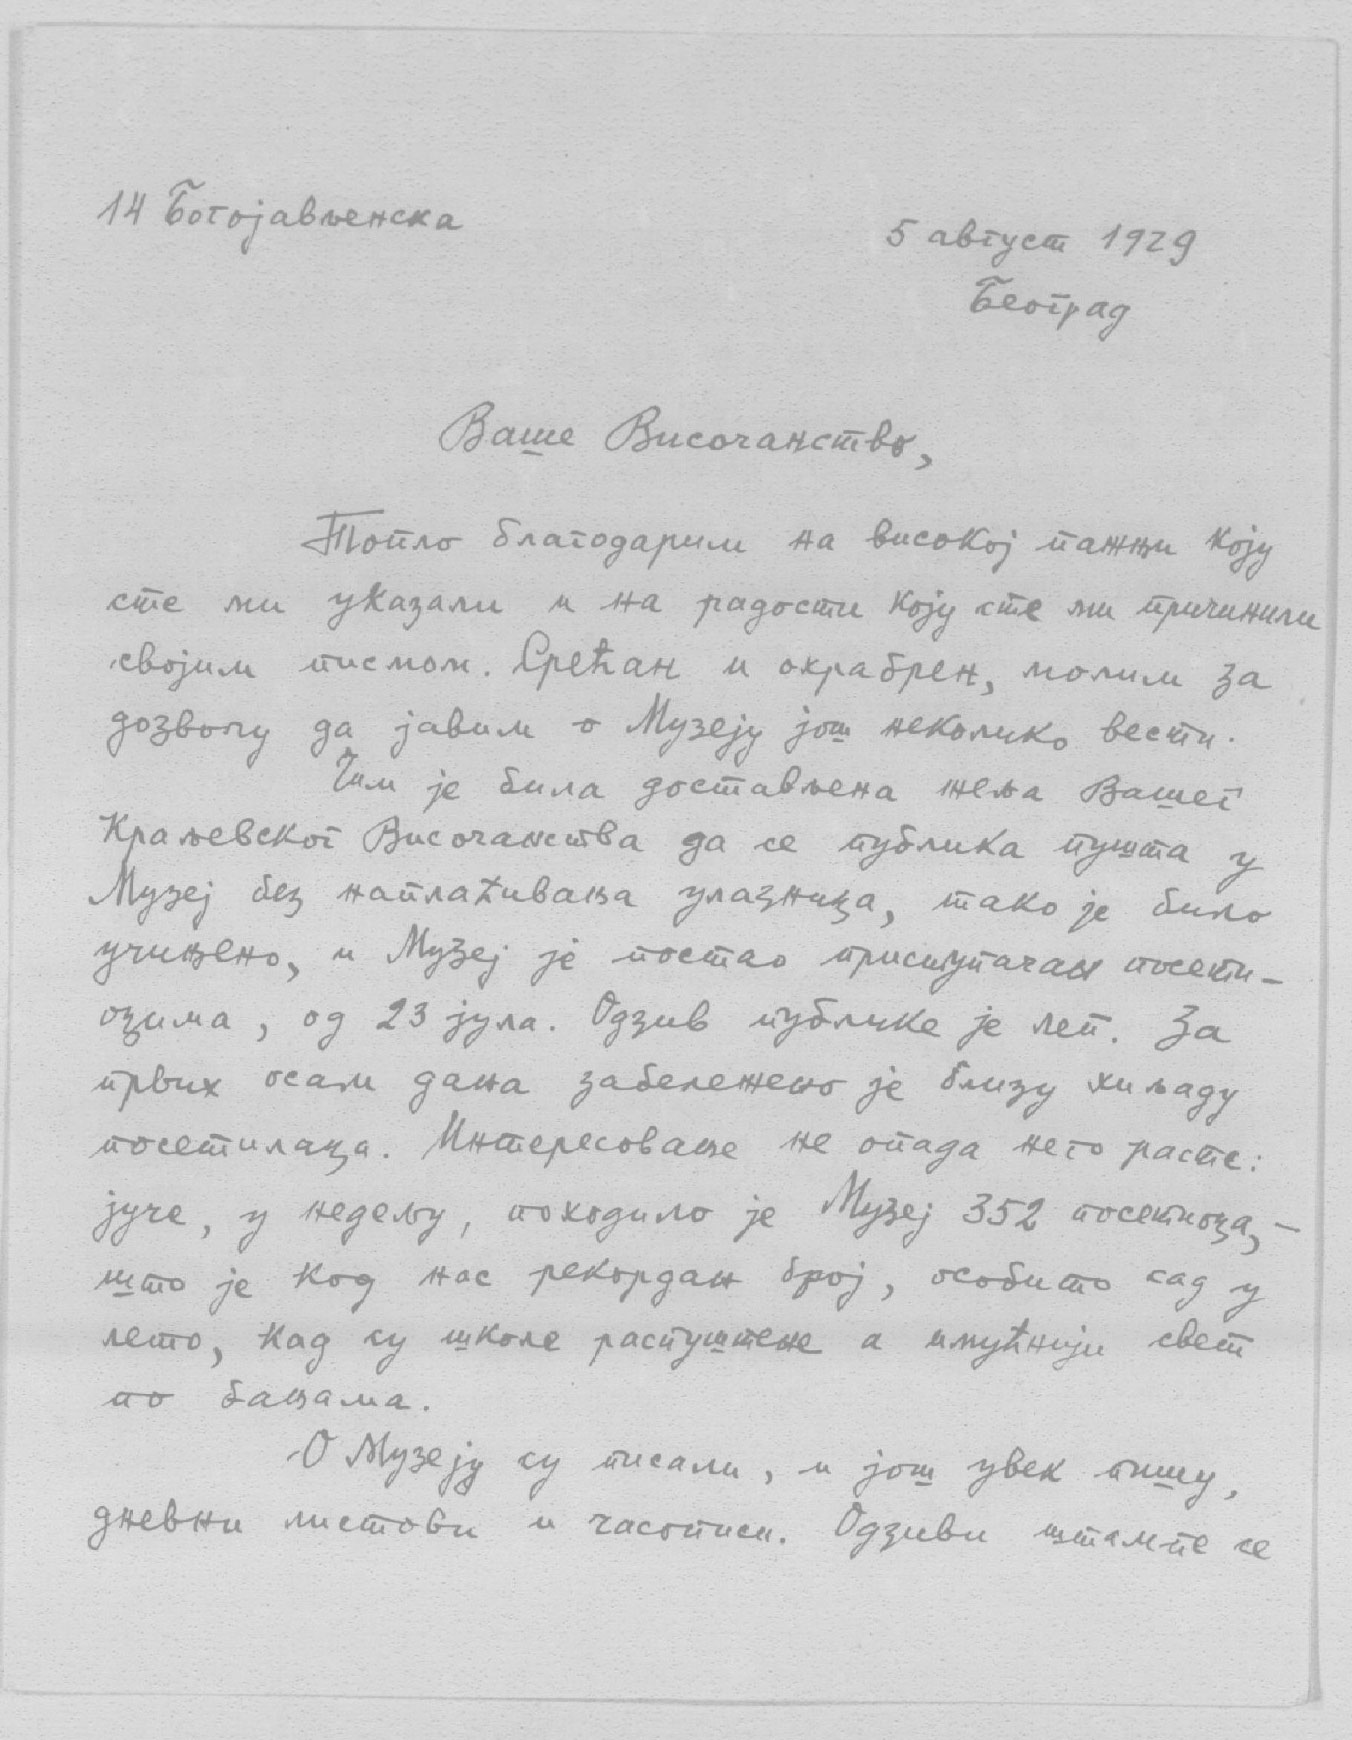 14 Богојављенска
5 август 1929
Београд
Ваше Височанство,
Топло благодарим на високој пажњи коју
сте ми указали и на радости коју сте ми причинили
својим писмом. Срећан и охрабрен, молим за
дозволу да јавим о Музеју још неколико вести.
Чим је била достављена жеља Вашег
Краљевског Височанства да се публика пушта у
Музеј без наплаћивања улазница, тако је било
учињено, и Музеј је постао приступачан посети-
оцима, од 23 јула. Одзив публике је леп. За
првих осам дана забележено је близу хиљаду
посетилаца. Интересовање не опада него расте:
јуче, у недељу, походило је Музеј 352 посетиоца, –
што је код нас рекордан број, особито сад у
лето, кад су школе распуштене а имућнији свет
по бањама.
О Музеју су писали, и још увек пишу,
дневни листови и часописи. Одзиви штампе се